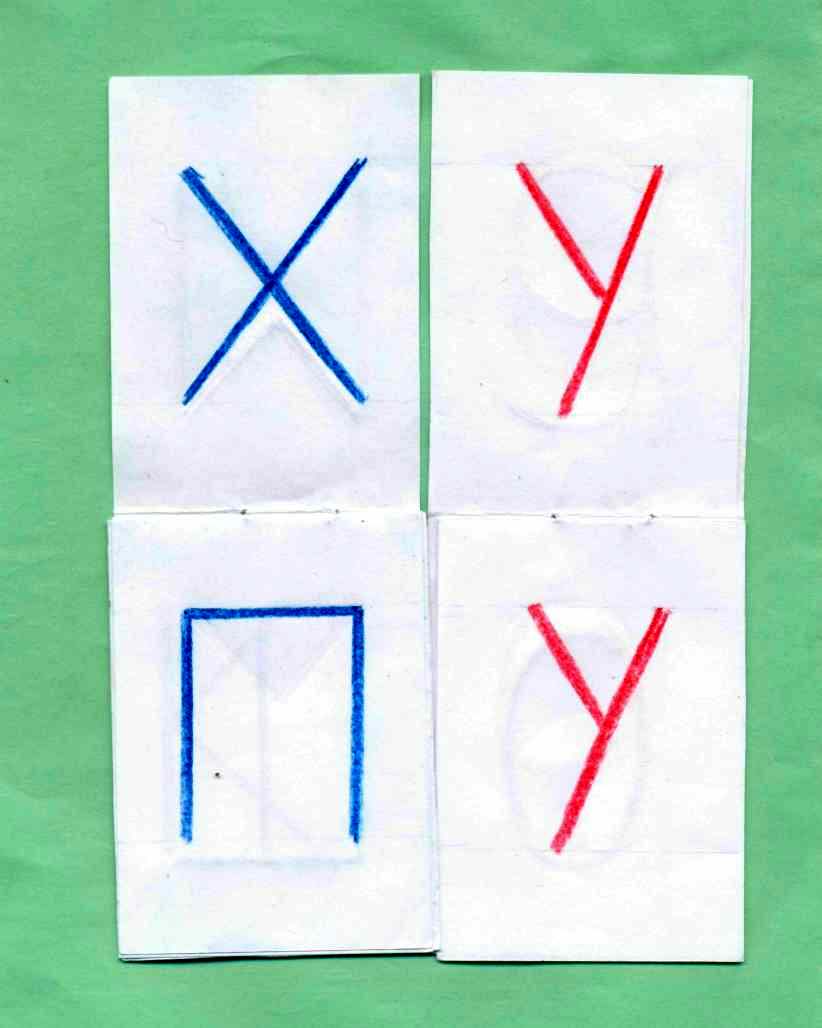 ХУ
ПУ